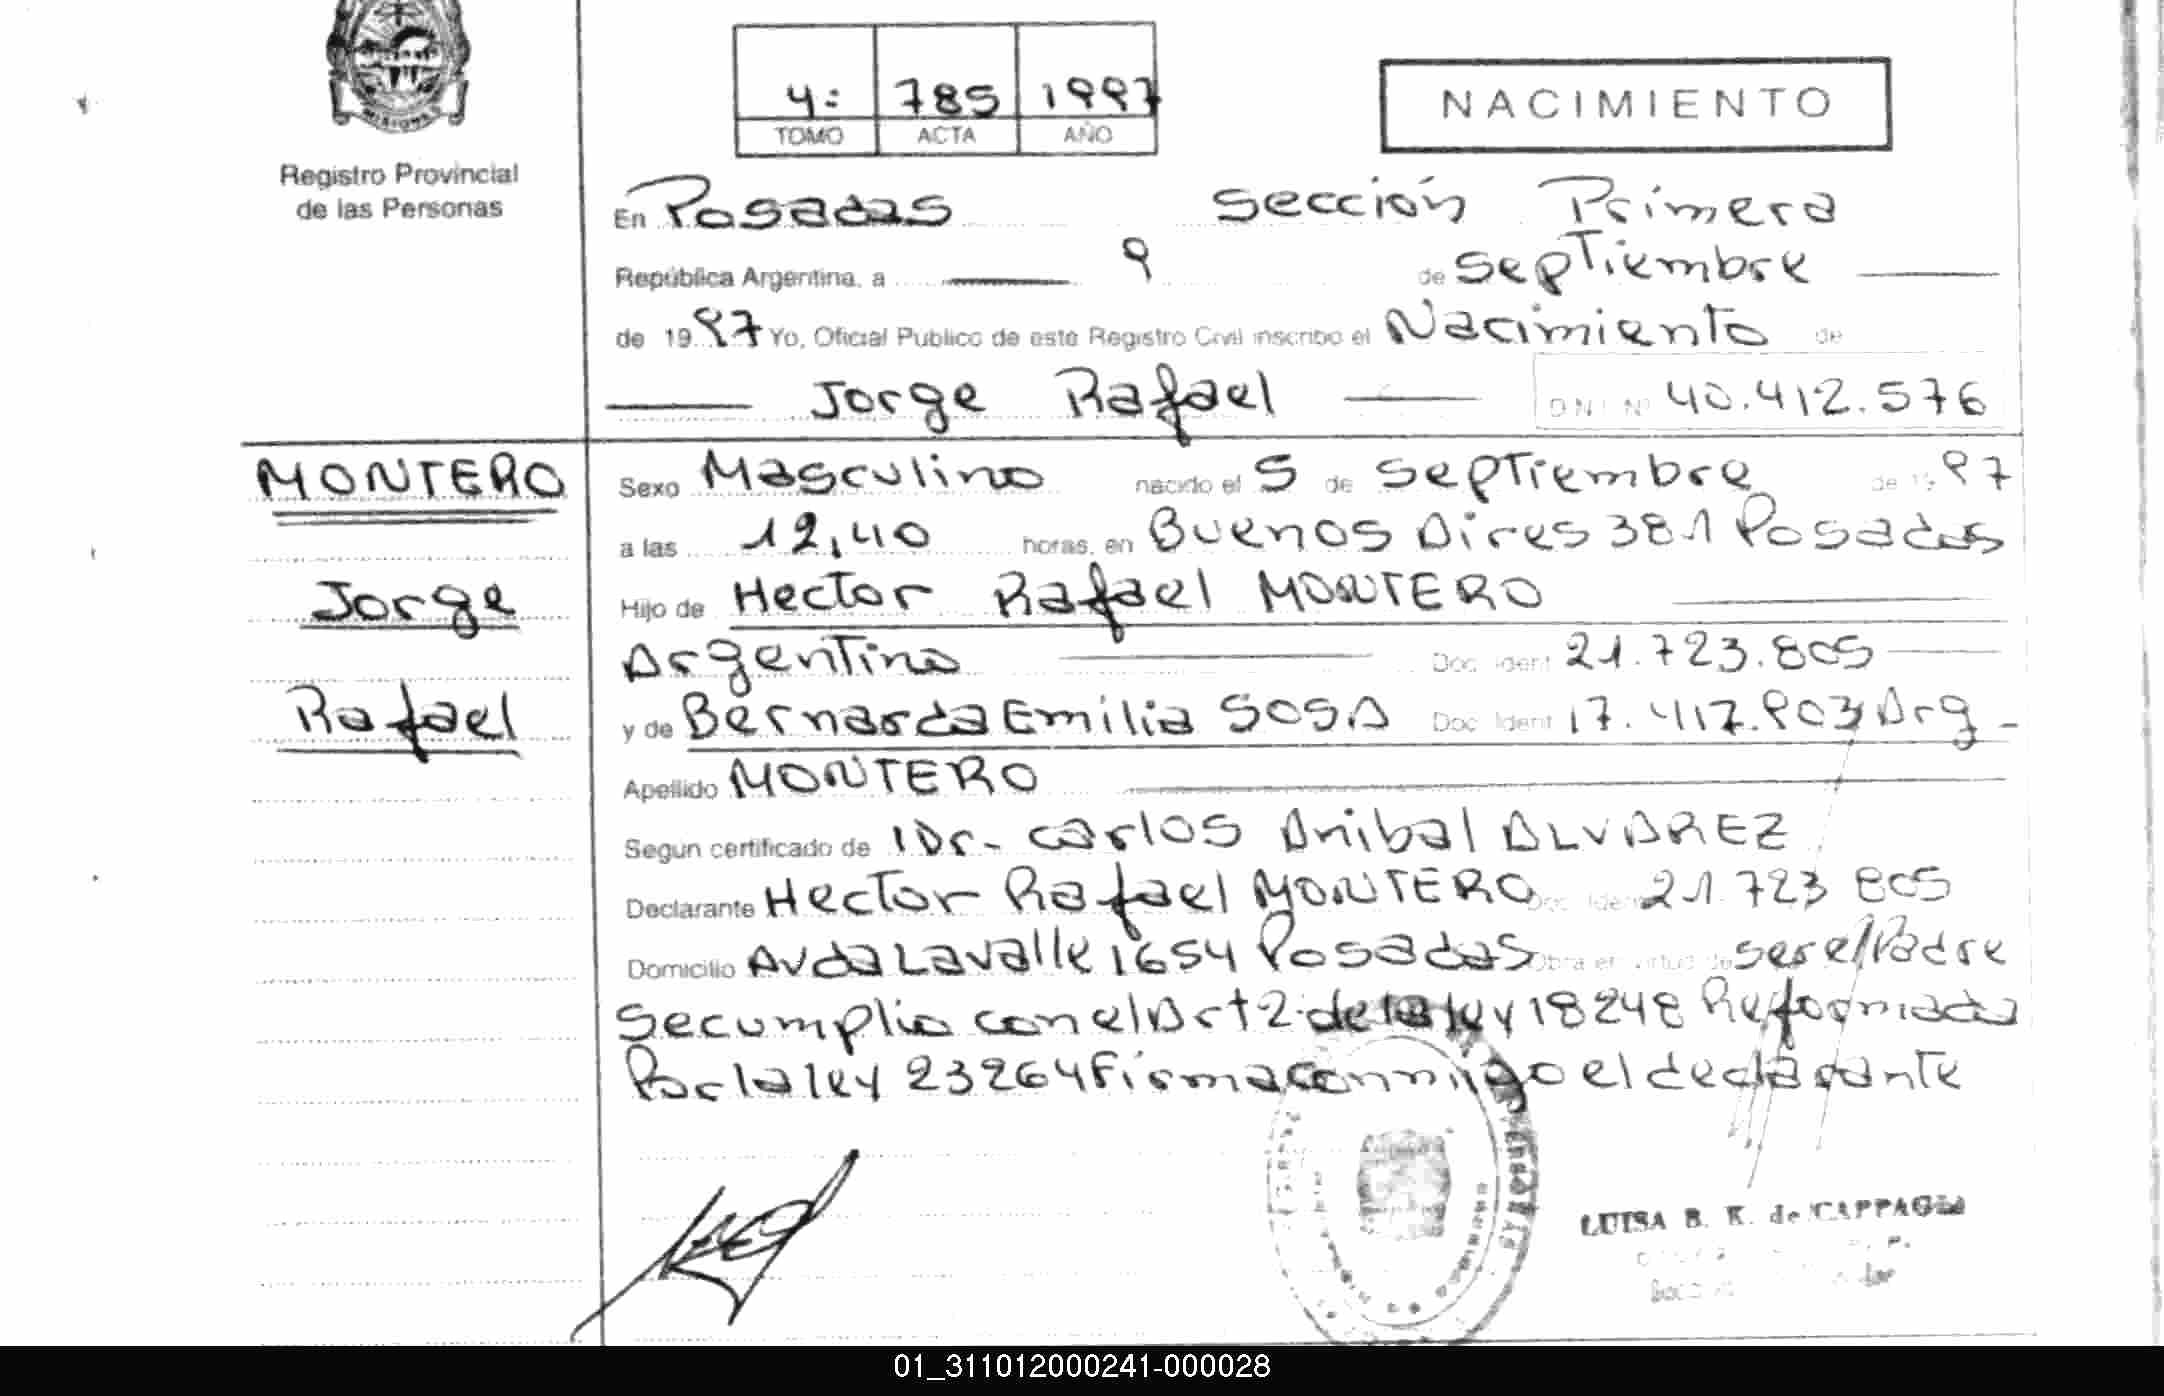 MISIONES
Registro Provincial
de las Personas
4: 785 1997
TOMO ACTA AÑO
NACIMIENTO
En Posadas Sección Primera
República Argentina, a 9 de Septiembre
de 1997 Yo, Oficial Publico de este Registro Civil inscribo el Nacimiento de
Jorge Rafael D N I Nº 40.412.576
MONTERO
Jorge
Rafael
Sexo Masculino nacido el 5 de Septiembre de 1997
a las 12,40 horas, en Buenos Aires 381 Posadas
Hijo de Hector Rafael MONTERO
Argentino Doc Ident 21.723.805
y de Bernarda Emilia SOSA Doc Ident 17.412.903 Arg
Apellido MONTERO
Segun certificado de Dr. Carlos Anibal ALVAREZ
Declarante Hector Rafael MONTERO Doc Ident 21.723 805
Domicilio Avda Lavalle 1654 Posadas Obra en virtud de ser el Padre
Se cumplio con el Art 2 de la ley 18248 Reformada
Por la ley 23264 Firma conmigo el declarante
LUISA B. K. de CAPPAGLI
01_311012000241-000028